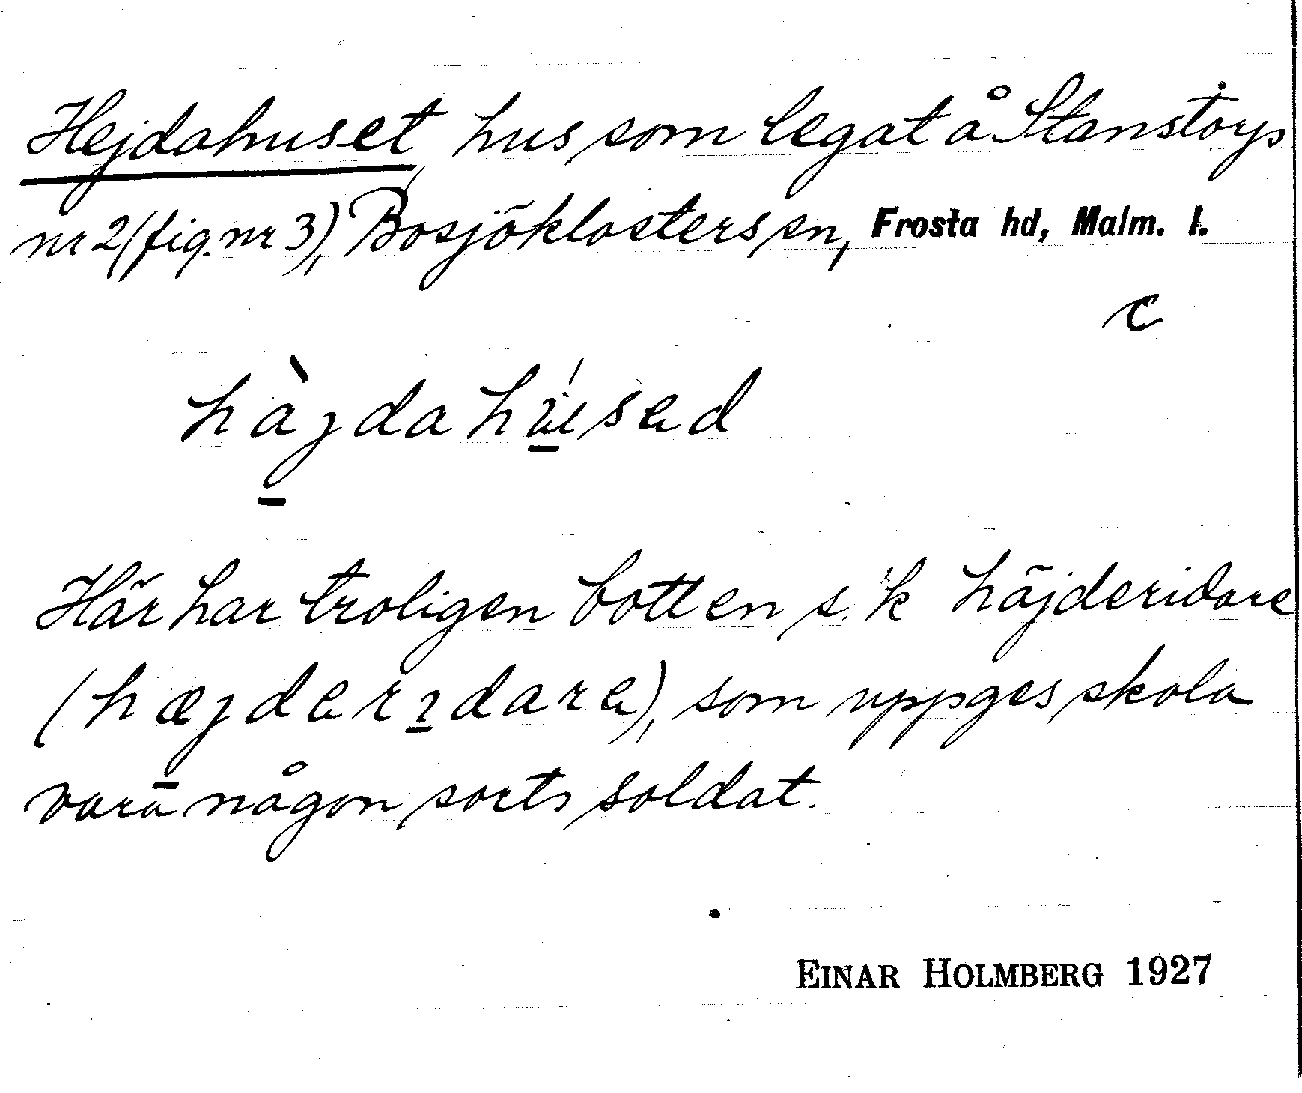 Hejdahuset, hus som legat å Stanstorps
nr 2 (fig. nr 3), Bosjöklosters sn, Frosta hd, Malm. l.
C
hàjdahúsed
Här har troligen bott en s. k häjderidare
(hæjderıdare), som uppges skola
vara någon sorts soldat.
EINAR HOLMBERG 1927